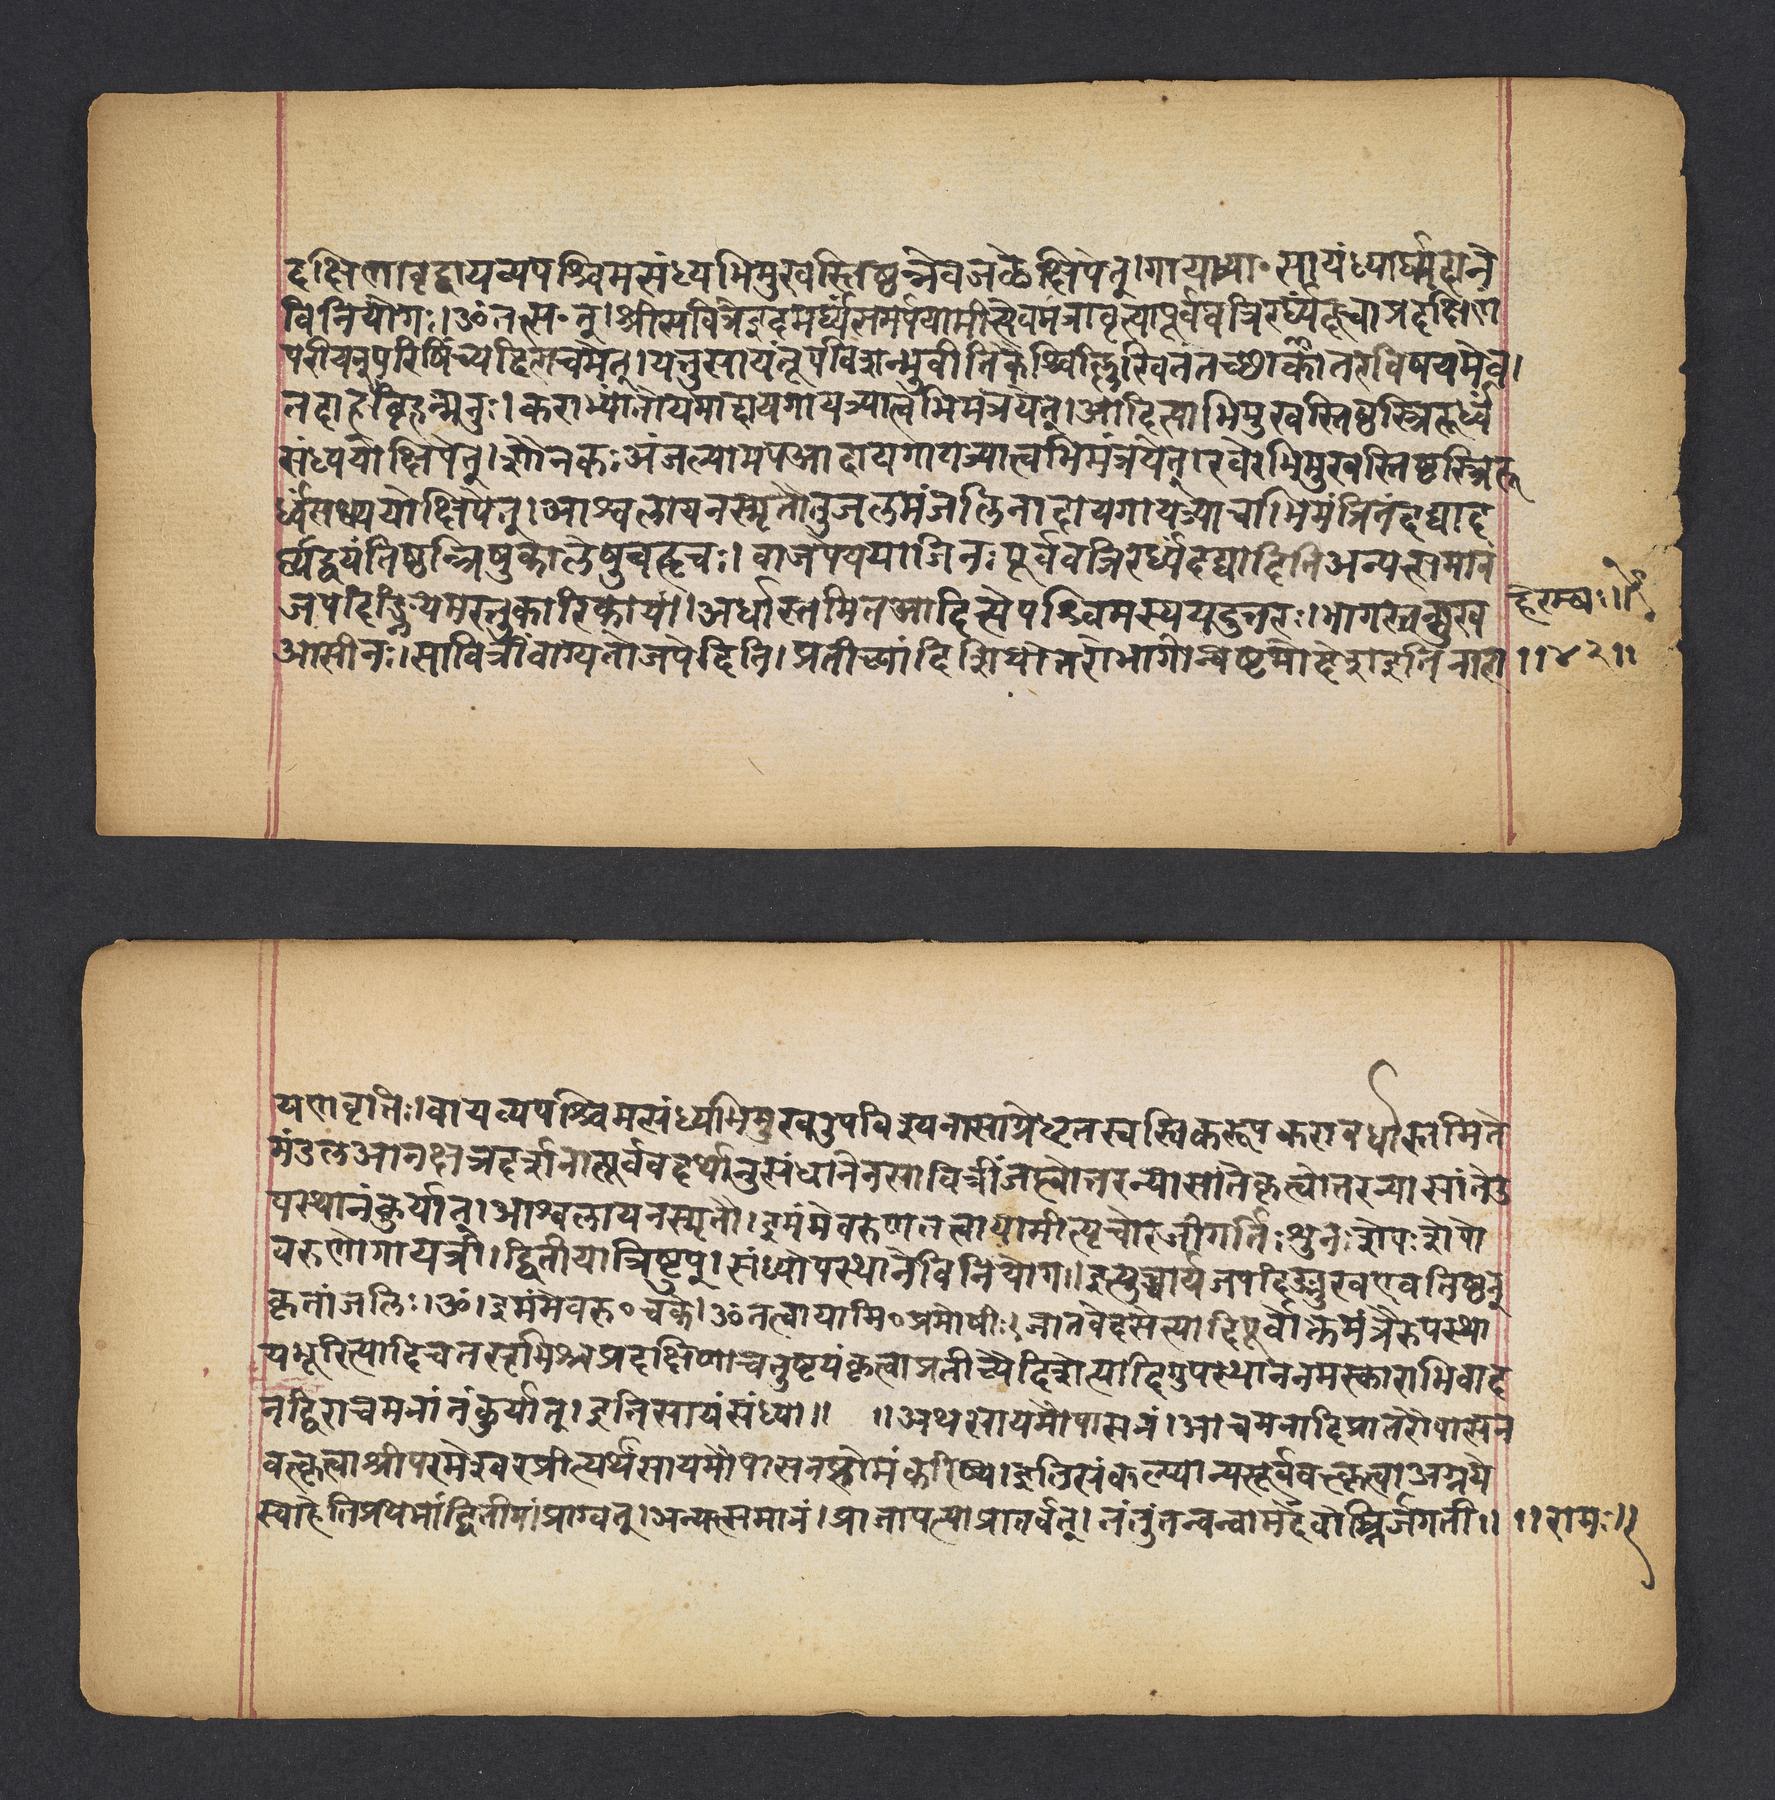 दक्षिणावृद्वायव्यपश्चिमसंध्यभिमुखस्तिष्ठन्नेवजळेक्षिपेत्।गायत्र्या॰सायंध्यार्घ्यदाने
विनियोगः।ॐतत्स॰त्।श्रीसवित्रेइदमर्घ्यंसमर्पयामीत्येवंमंत्रावृत्त्यापूर्ववत्रिरर्घ्यंदत्वाप्रदक्षिणं
परीयन्परिषिंच्यद्विराचमेत्।यत्तुसायंतूपविशन्भुवीतिक्वचिल्लिखितंतच्छाखांतरविषयमेव।
तदाहबृहन्मनुः।कराभ्यांतोयमादायगायत्र्याचाभिमंत्रयेत्।आदित्याभिमुखस्तिष्ठंस्त्रिरूर्ध्वं
संध्ययोःक्षिपेत्।शौनकः।अंजल्यामपआदायगायत्र्यात्वभिमंत्रयेत्।रवेरभिमुखस्तिष्ठंस्त्रिरू
र्ध्वंसंध्ययोःक्षिपेत्।आश्वलायनस्मृतौतुजलमंजलिनादायगायत्र्याचाभिमंत्रितंदद्याद
र्घ्यद्वयंतिष्ठन्त्रिषुकालेषुबह्वृचः।वाजपेययाजिनःपूर्ववत्रिरर्घ्यंदद्यादितिअन्यत्समानं
जपेदि॰यमस्तुकारिकायां।अर्धास्तमितआदित्येपश्चिमस्यययदुत्तरः।भागस्तन्मुख हेरम्बः॥
आसीनः।सावित्रींवाग्यतोजपेदिति।प्रतीच्यांदिशियोत्तरोभागोन्वष्टमादेशइतिनारा ॥४२॥
यणवृत्तिः।वायव्यपश्चिमसंध्यभिमुखउपविश्यनासाग्रेधृतस्वस्तिकरूपकरावर्धास्तमिते
मंडलआनक्षत्रदर्शनात्पूर्ववदर्थानुसंधानेनसावित्रींजप्त्वोत्तरन्यासांतेकृत्वोत्तरन्यासांतेउ
पस्थानंकुर्यात्।आश्वलायनस्मृतौ।इमंमेवरुणतत्वायामीत्यृचोरजीगर्तिःशुनःशेपःशेपो
वरुणोगायत्री।द्वितीयात्रिष्टुप्।संध्योपस्थानेविनियोगः।इत्युच्चार्यजपदिङ्मुखएवतिष्ठन्
कृतांजलिः।ॐ।इमंमेवरु॰चके।ॐतत्वायामि॰प्रमोषीः।जातवेदसेत्यादिपूर्वोक्तमंत्रैरुपस्था
यभूरित्यादिचतसृभिश्चप्रदक्षिणाच्चतुष्टयंकृत्वाप्रतीच्यैदिशेत्यादिगुपस्थाननमस्काराभिवाद
नद्विराचमनांतंकुर्यात्।इतिसायंसंध्या॥ ॥अथसायमौपासनं।आचमनादिप्रातरौपासन
वत्कृत्वाश्रीपरमेश्वरप्रीत्यर्थंसायमौपासनहोमंकरिष्य।इतिसंकल्प्यान्यत्पूर्ववत्कृत्वाअग्नये
स्वाहेतिप्रथमांद्वितीयांप्राग्वत्।अन्यत्समानं।प्राजापत्याप्रातर्वत्।तंतुंतन्वन्वामदेवोग्निर्जगती॥ ॥रामः॥